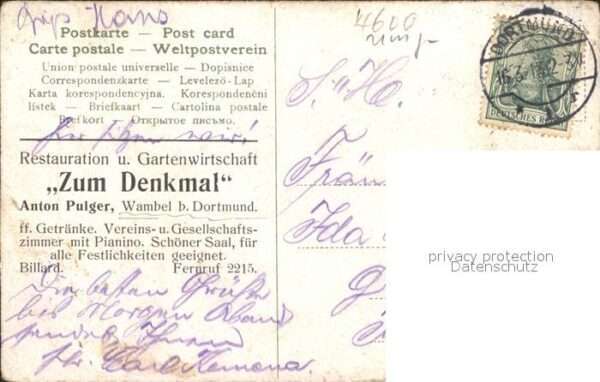 Hans
Postkarte — Post card
Carte postale — Weltpostverein
Union postale universelle — Dopisnice
Correspondenzkarte — Levelező-Lap
Karta korespondencyjna. Korespondenční
lístek — Briefkaart — Cartolina postale
Brefkort — Открытое письмо.
wir!
Restauration u. Gartenwirtschaft
„Zum Denkmal“
Anton Pulger, Wambel b. Dortmund.
ff. Getränke. Vereins- u. Gesellschafts-
zimmer mit Pianino. Schöner Saal, für
alle Festlichkeiten geeignet.
Billard. Fernruf 2215.
Die besten Grüße
bis Morgen Abend
sendet Ihnen
Carl
4600
DORTMUND
DEUTSCHES REICH
S. H.
Frän
Ida
privacy protection
Datenschutz